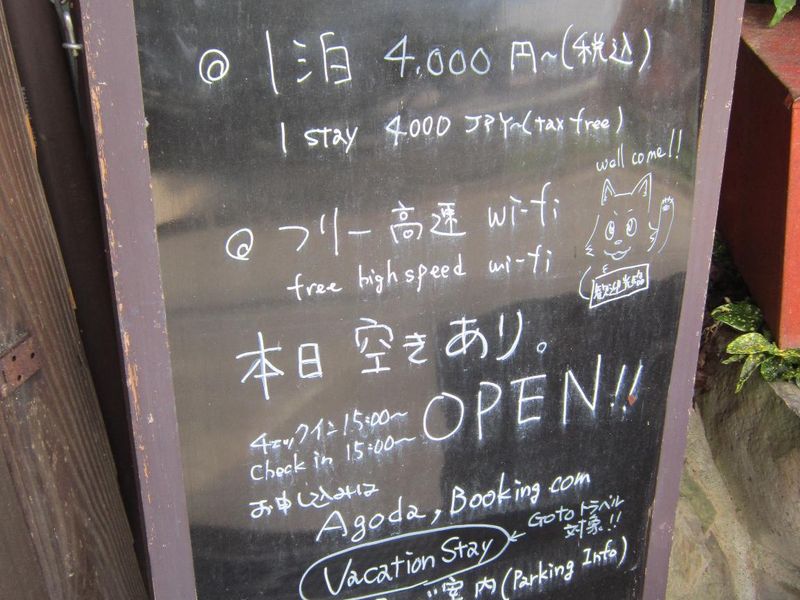 @ 1泊 4,000 円~(税込)
1 stay 4000 JPY~(tax free)
well come!!
@ フリー高速 wi-fi
free high speed wi-fi
歓迎光臨
本日 空きあり。
OPEN!!
チェックイン 15:00~
check in 15:00~
お申し込みは
Agoda, Booking.com
Vacation Stay ← GOTOトラベル
対象!!
案内 (Parking Info)